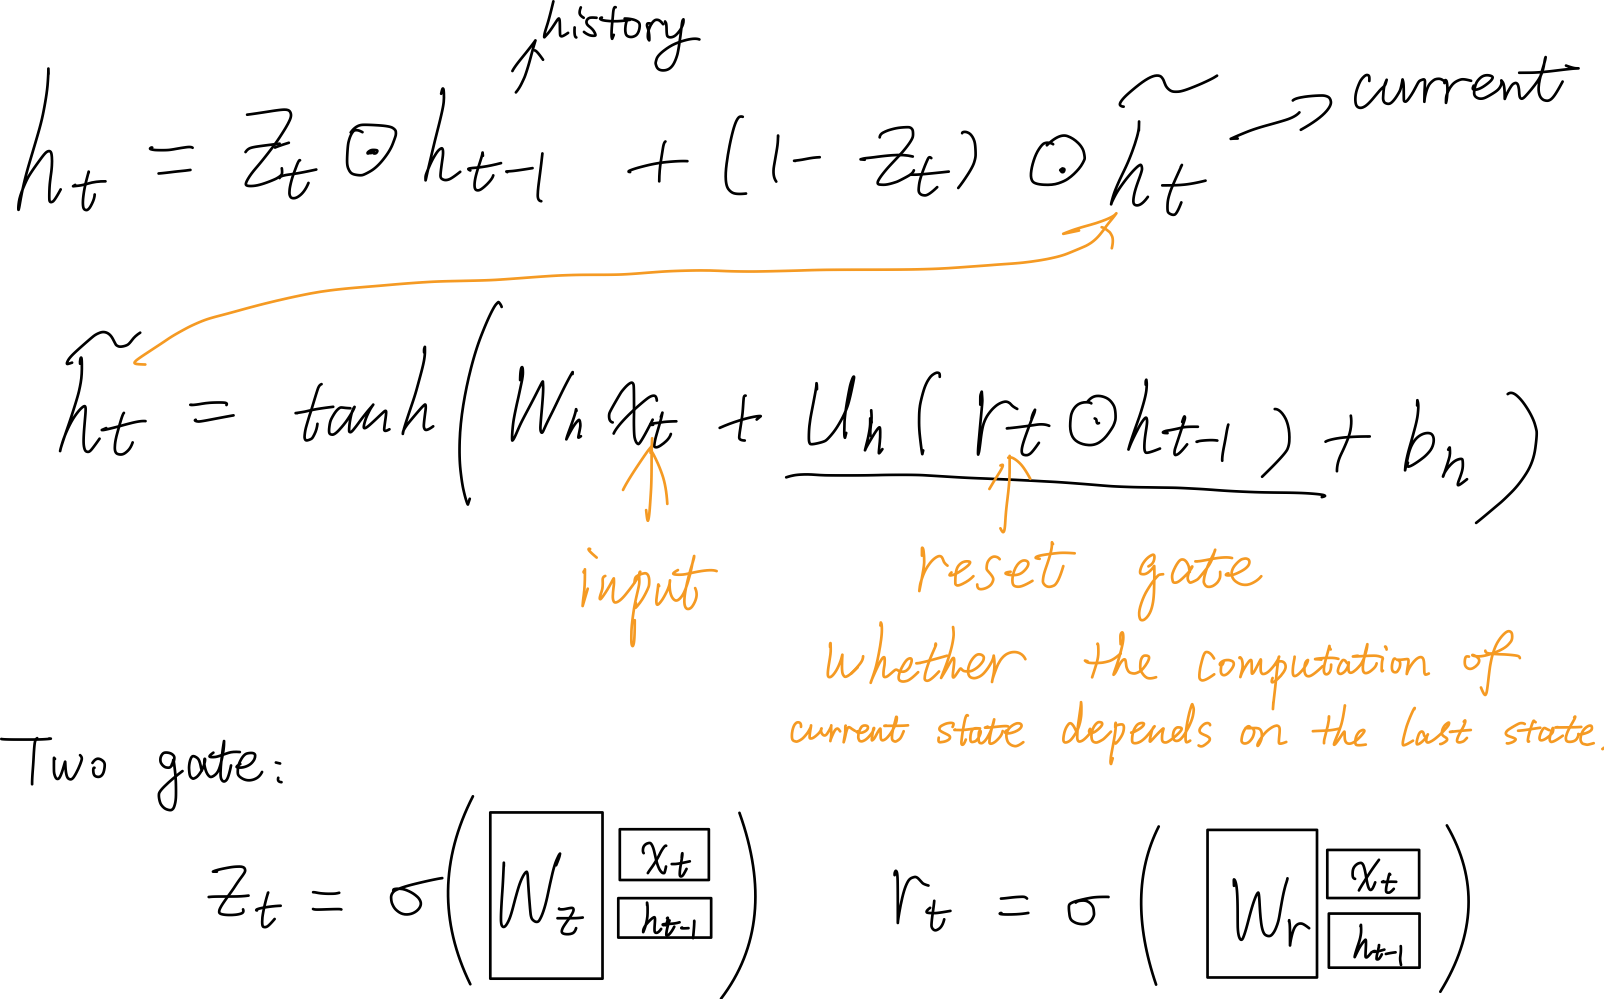 history
current
h_t = z_t ⊙ h_{t-1} + (1 - z_t) ⊙ h̃_t
h̃_t = tanh(W_h x_t + U_h(r_t ⊙ h_{t-1}) + b_h)
input
reset gate
Whether the computation of
current state depends on the last state.
Two gate:
z_t = σ(W_z x_t h_{t-1})
r_t = σ(W_r x_t h_{t-1})